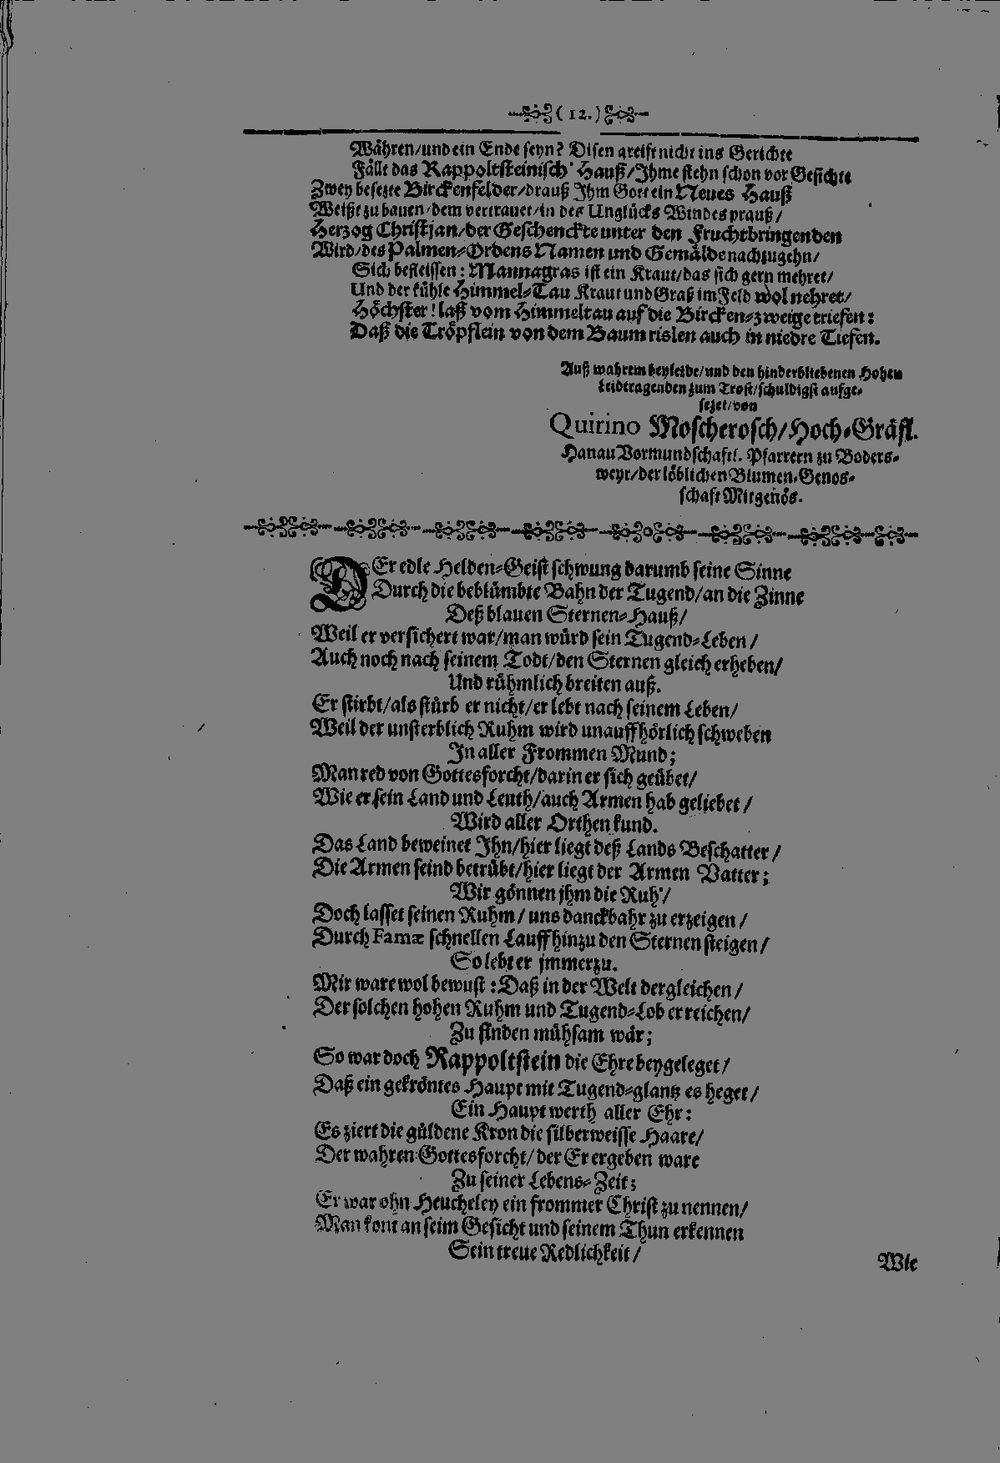 ( 12. )
Währen/und ein Ende seyn? Disen greifft nicht ins Gerichte
Fällt das Rappoltsteinisch' Hauß/Ihme stehn schon vor Gesichte
Zwey besezte Birckenfelder/drauß Ihm Gott ein Neues Hauß
Weißt zu bauen/dem vertrauet/in des Unglücks Windes prauß/
Herzog Christjan/der Geschenckte unter den Fruchtbringenden
Wird/des Palmen-Ordens Namen und Gemälde nachzugehn/
Sich befleissen: Mannagras ist ein Kraut/das sich gern mehret/
Und der kühle Himmel-Tau Kraut und Graß im Feld wol nehret/
Höchster! laß vom Himmeltau auf die Bircken-zweige triefen:
Daß die Tröpflein von dem Baum rislen auch in niedre Tiefen.
Auß wahrem beyleide/und den hinderbliebenen Hohen
Leidtragenden zum Trost/schuldigst aufge-
sezet/von
Quirino Moscherosch/Hoch-Gräfl.
Hanau Vormundschaftl. Pfarrern zu Boders-
weyr/der löblichen Blumen-Genos-
schaft Mitgenös.
DEr edle Helden-Geist schwung darumb seine Sinne
Durch die beblümbte Bahn der Tugend/an die Zinne
Deß blauen Sternen-Hauß/
Weil er versichert war/man würd sein Tugend-Leben/
Auch noch nach seinem Todt/den Sternen gleich erheben/
Und rühmlich breiten auß.
Er stirbt/als stürb er nicht/er lebt nach seinem Leben/
Weil der unsterblich Ruhm wird unauffhörlich schweben
In aller Frommen Mund;
Man red von Gottesforcht/darin er sich geübet/
Wie er sein Land und Leuth/auch Armen hab geliebet/
Wird aller Orthen kund.
Das Land beweinet Ihn/hier liegt deß Lands Beschatter/
Die Armen seind betrübt/hier liegt der Armen Vatter;
Wir gönnen jhm die Ruh'/
Doch lasset seinen Ruhm/uns danckbahr zu erzeigen/
Durch Famæ schnellen Lauff hinzu den Sternen steigen/
So lebt er jmmerzu.
Mir ware wol bewust: Daß in der Welt dergleichen/
Der solchen hohen Ruhm und Tugend-Lob erreichen/
Zu finden mühsam wär;
So war doch Rappoltstein die Ehre beygeleget/
Daß ein gekröntes Haupt mit Tugend-glantz es heget/
Ein Haupt werth aller Ehr:
Es ziert die güldene Kron die silberweisse Haare/
Der wahren Gottesforcht/der Er ergeben ware
Zu seiner Lebens-Zeit;
Er war ohn Heucheley ein frommer Christ zu nennen/
Man kont an seim Gesicht und seinem Thun erkennen
Sein treue Redlichkeit/
Wie